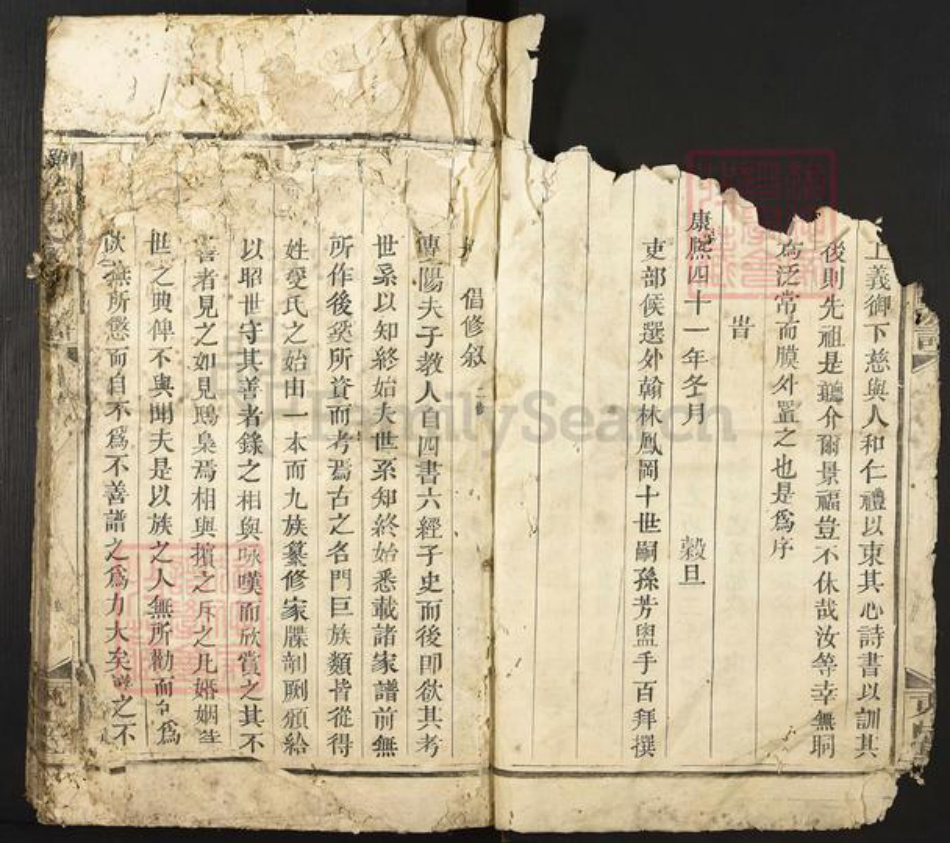 上義御下慈與人和仁禮以東其心詩書以訓其
後則先祖是聽介爾景福豈不休哉汝等幸無眮
為泛常而膜外置之也是爲序
旹
康熙四十一年冬月 穀旦
吏部候選外翰林鳳岡十世嗣孫芳盥手百拜撰
倡修叙 二修
傳陽夫子教人自四書六經子史而後即欲其考
世系以知終始夫世系知終始悉載諸家譜前無
所作後奚所資而考焉古之名門巨族類皆從得
姓受氏之始由一本而九族纂修家牒剞劂頒給
以昭世守其善者錄之相與咏嘆而欣賞之其不
善者見之如見鴟梟焉相與擯之斥之凡婚姻
世之典俾不與聞夫是以族之人無所勸而自爲
無所懲而自不爲不善譜之爲力大矣 之不
FamilySearch